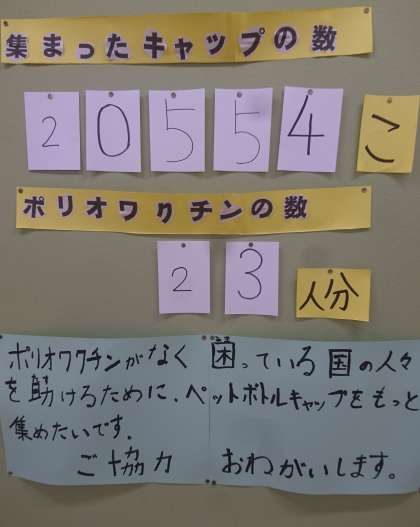 集まったキャップの数
20554こ
ポリオワクチンの数
23人分
ポリオワクチンがなく困っている国の人々
を助けるために、ペットボトルキャップをもっと
集めたいです。
ご協力 おねがいします。